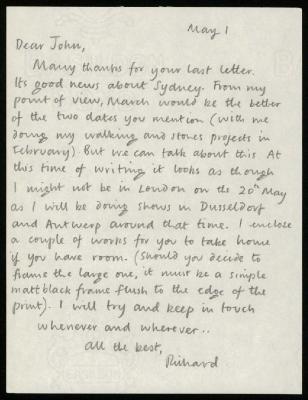 May 1
Dear John,
Many thanks for your last letter.
Its good news about Sydney. From my
point of view, March would be the better
of the two dates you mention (with me
doing my walking and stones projects in
February). But we can talk about this. At
this time of writing it looks as though
I might not be in London on the 20th May
as I will be doing shows in Dusseldorf
and Antwerp around that time. I enclose
a couple of works for you to take home
if you have room. (Should you decide to
frame the large one, it must be a simple
matt black frame flush to the edge of the
print). I will try and keep in touch
whenever and wherever..
all the best,
Richard